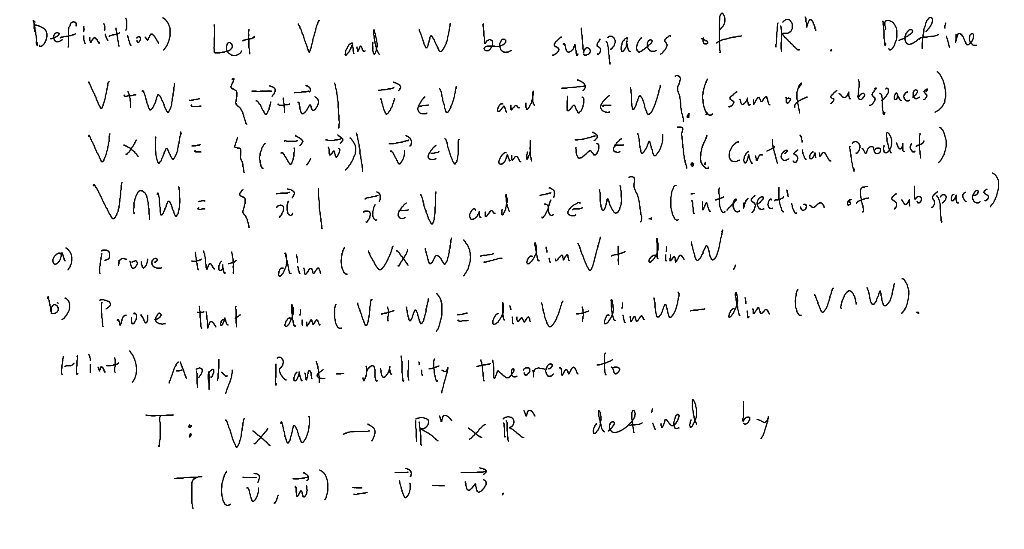 Definition) Let V and W be subspaces of ℝⁿ. Define
V + W = { v⃗+w⃗ | v⃗ ∈ V and w⃗ ∈ W }. ( sum of subspaces )
V × W = { ( v⃗, w⃗ ) | v⃗ ∈ V and w⃗ ∈ W }. ( Cartesian product )
V ∩ W = { x⃗ | x⃗ ∈ V and x⃗ ∈ W }. ( intersection of subspaces )
a) Prove that dim ( V × W ) = dim V + dim W.
b) Prove that dim ( V + W ) = dim V + dim W - dim ( V ∩ W ).
Hint) Apply Rank - nullity theorem to
T : V × W → ℝⁿ × ℝⁿ defined by
T ( v⃗, w⃗ ) = v⃗ - w⃗.